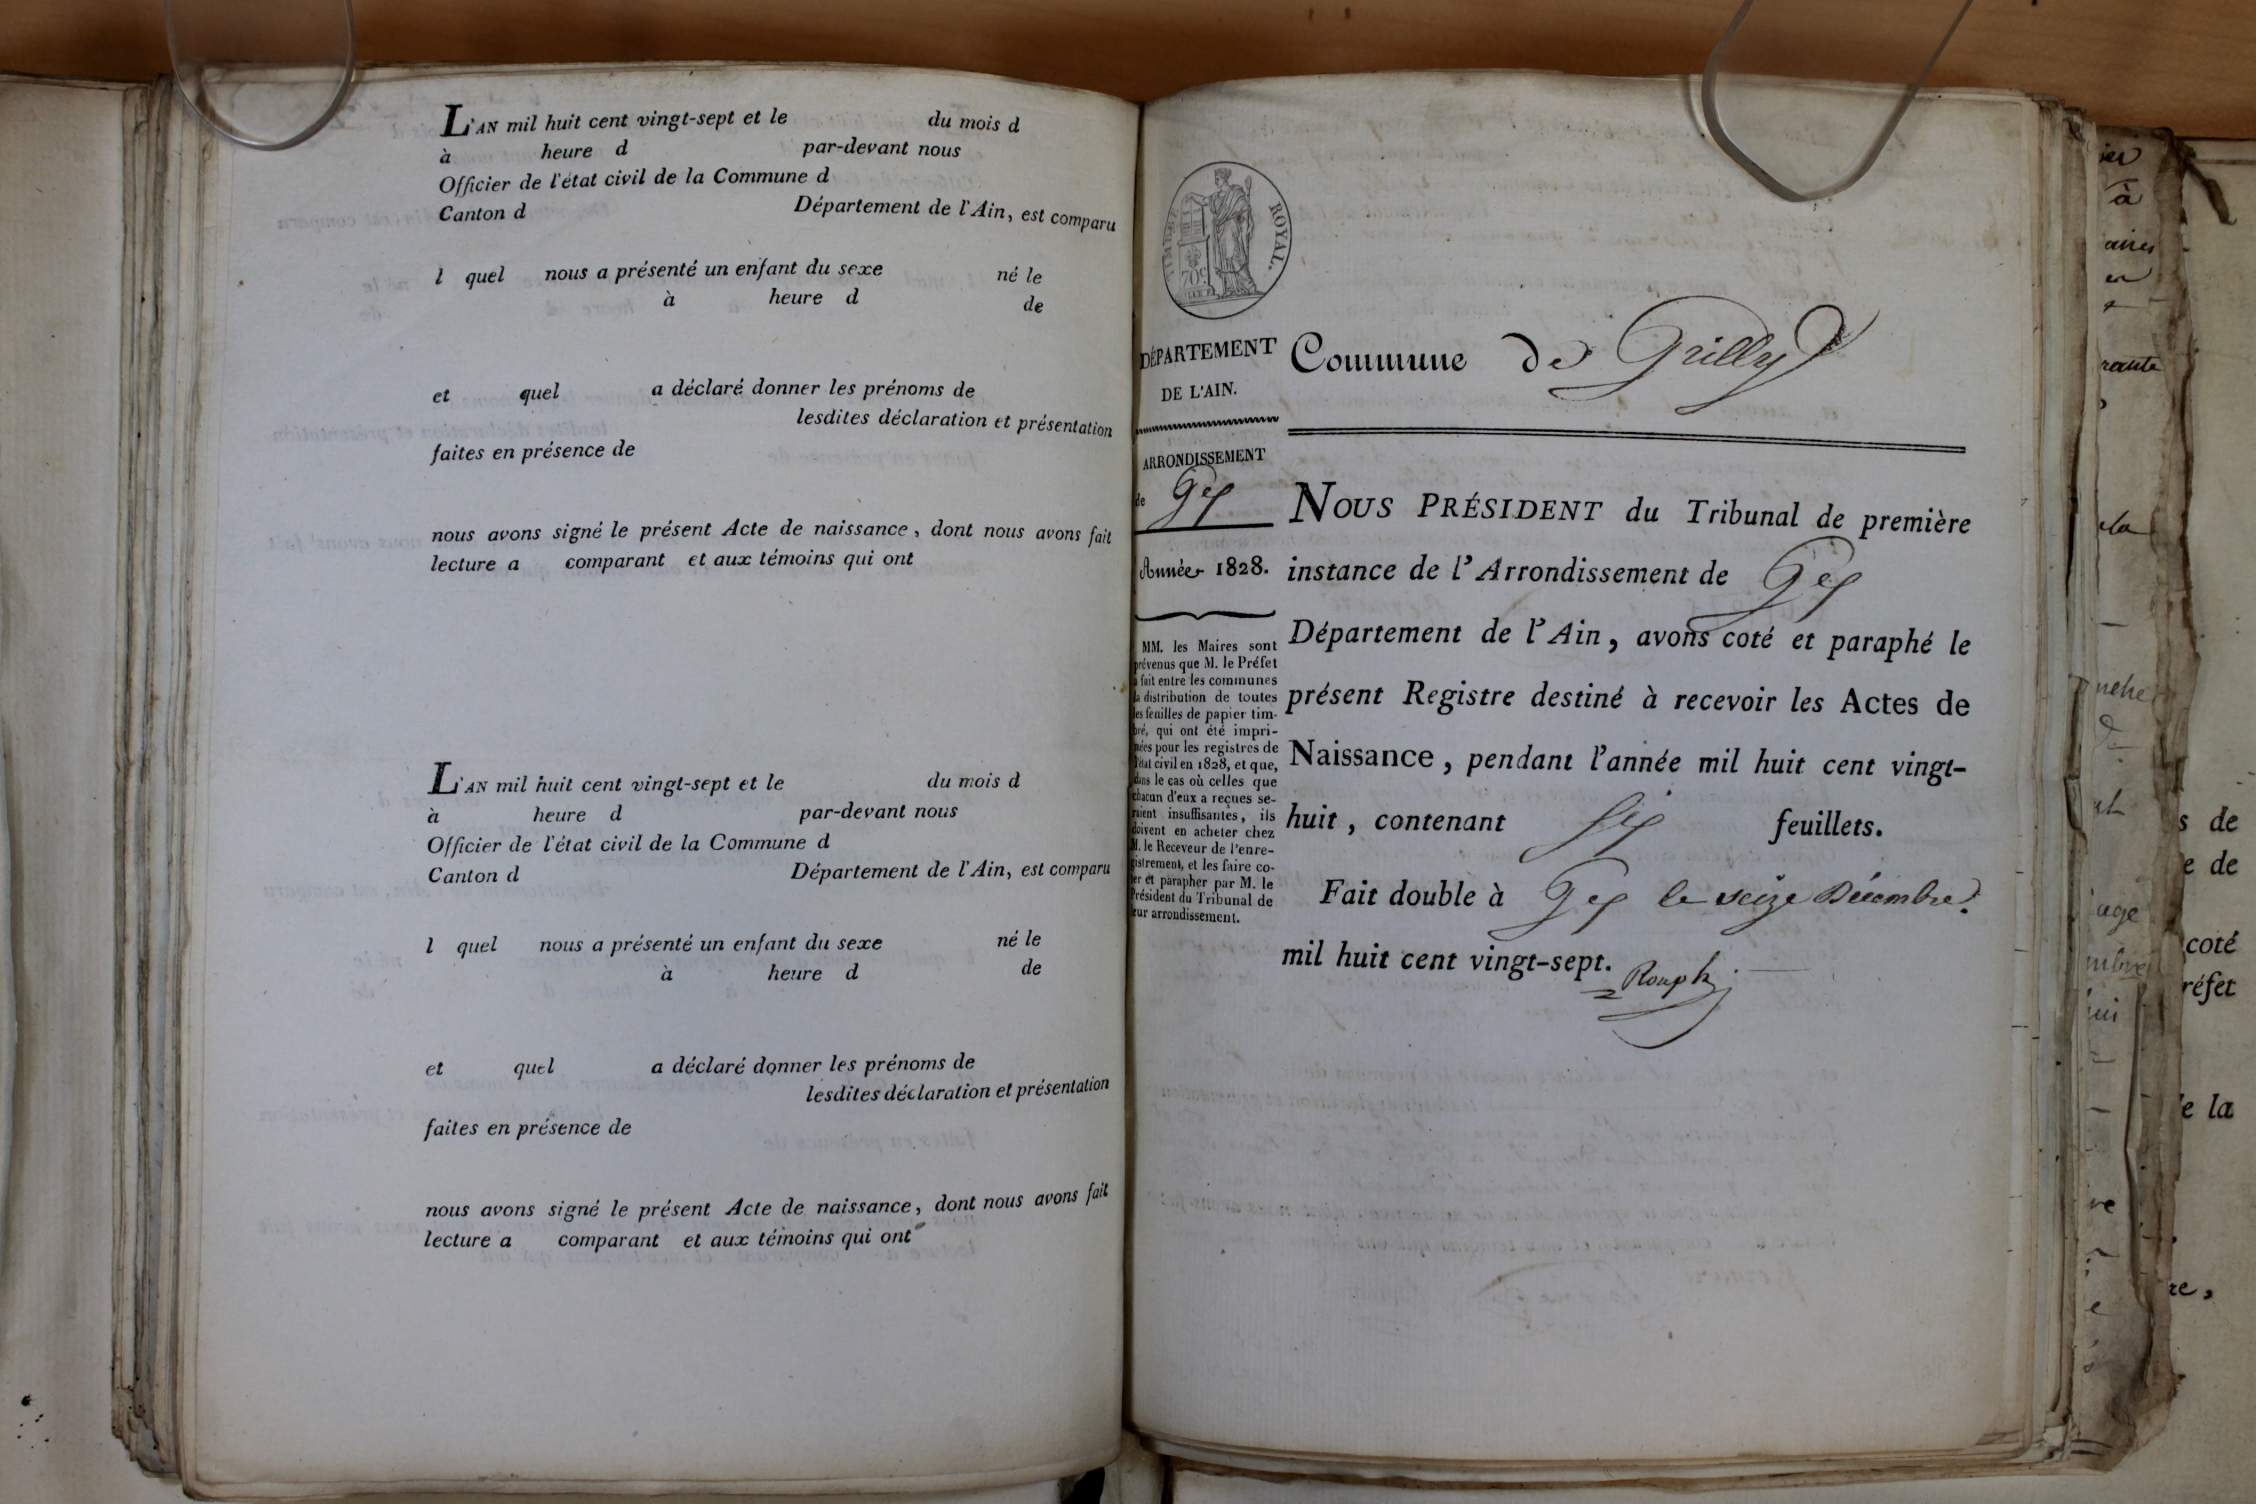 L'AN mil huit cent vingt-sept et le du mois d
à heure d par-devant nous
Officier de l'état civil de la Commune d
Canton d Département de l'Ain, est comparu
l quel nous a présenté un enfant du sexe né le
à heure d de
et quel a déclaré donner les prénoms de
lesdites déclaration et présentation
faites en présence de
nous avons signé le présent Acte de naissance, dont nous avons fait
lecture a comparant et aux témoins qui ont
L'AN mil huit cent vingt-sept et le du mois d
à heure d par-devant nous
Officier de l'état civil de la Commune d
Canton d Département de l'Ain, est comparu
l quel nous a présenté un enfant du sexe né le
à heure d de
et quel a déclaré donner les prénoms de
lesdites déclaration et présentation
faites en présence de
nous avons signé le présent Acte de naissance, dont nous avons fait
lecture a comparant et aux témoins qui ont
TIMBRE ROYAL.
70c
DÉPARTEMENT
DE L'AIN.
ARRONDISSEMENT
de Gex
Année 1828.
MM. les Maires sont
prévenus que M. le Préfet
a fait entre les communes
la distribution de toutes
les feuilles de papier tim-
bré, qui ont été impri-
mées pour les registres de
l'état civil en 1828, et que,
dans le cas où celles que
chacun d'eux a reçues se-
raient insuffisantes, ils
doivent en acheter chez
M. le Receveur de l'enre-
gistrement, et les faire co-
ter et parapher par M. le
Président du Tribunal de
leur arrondissement.
Commune de Grilly
NOUS PRÉSIDENT du Tribunal de première
instance de l'Arrondissement de Gex
Département de l'Ain, avons coté et paraphé le
présent Registre destiné à recevoir les Actes de
Naissance, pendant l'année mil huit cent vingt-
huit, contenant six feuillets.
Fait double à Gex le seize Décembre
mil huit cent vingt-sept.
à
rante
la
s de
e de
coté
réfet
e la
re,